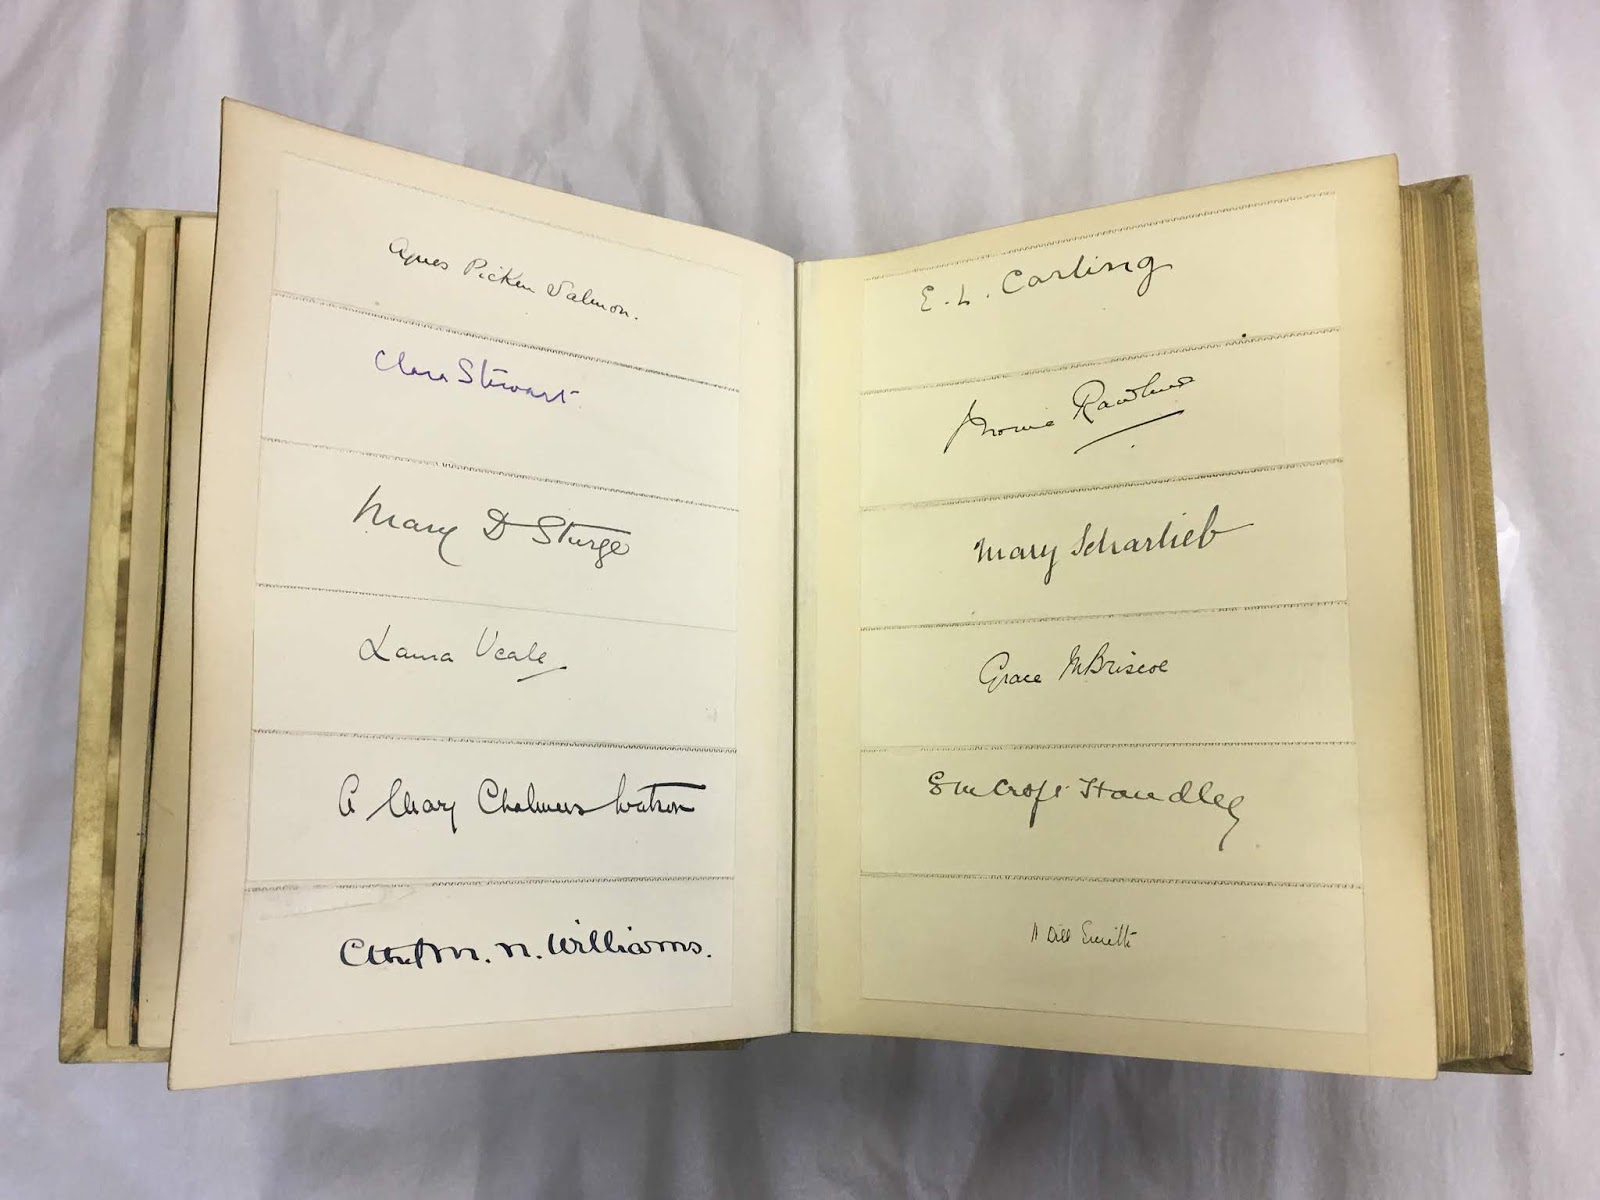 Agnes Picken Salmon.
Clara Stewart
Mary D Sturge
Laura Veale
A Mary Chalmers Watson
Ethel M. N. Williams.
E. L. Carling
Rawlins
Mary Scharlieb
Grace M Briscoe
E M Croft Handley